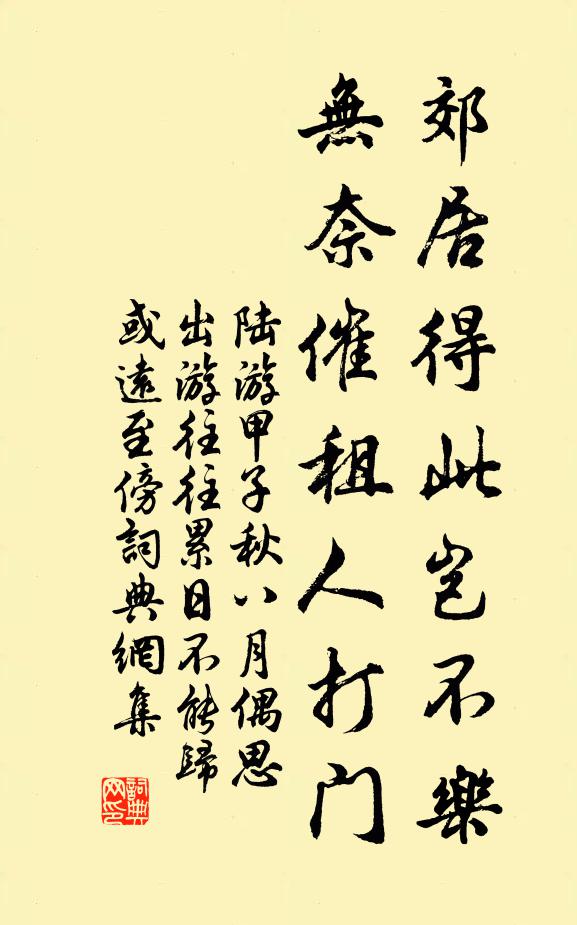 郊居得此岂不樂
無奈催租人打門
陆游甲子秋八月偶思
出游往往累日不能歸
或遠至傍詞典網集
詞典
网印